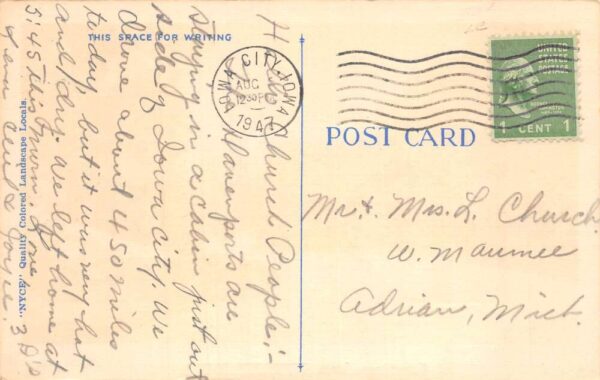 THIS SPACE FOR WRITING
"NYCE" Quality Colored Landscape Locals.
Church People:-
Davenports are
staying in a cabin just out
side of Iowa City. We
drove about 450 miles
today, but it was very hot
and dry. We left home at
5:45 this morn. Love
Lena Cecil & Joyce. 3 D's
IOWA CITY, IOWA
AUG
12 30 PM
1947
UNITED STATES
POSTAGE
1 CENT 1
POST CARD
Mr. & Mrs. L. Church
W. Maumee
Adrian, Mich.